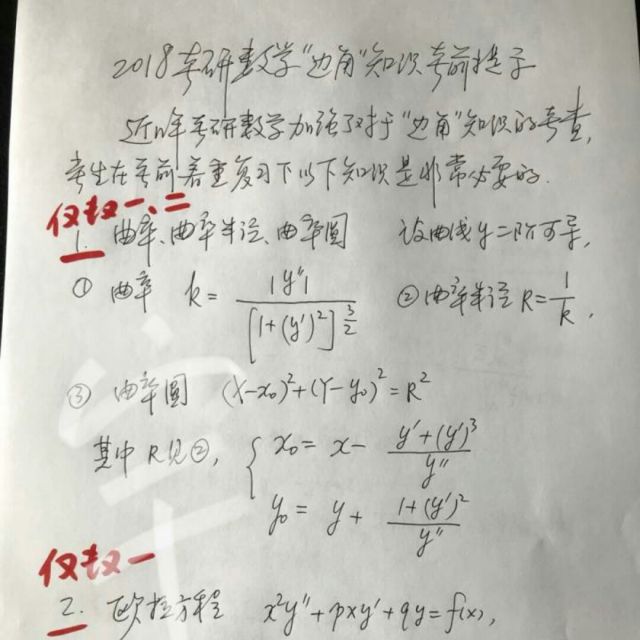 2018考研数学“边角”知识考前提示
近些年考研数学加强了对于“边角”知识的考查,
考生在考前着重复习下以下知识是非常必要的.
仅数一、二
1. 曲率、曲率半径、曲率圆 设曲线y二阶可导,
① 曲率 k = |y''| / [1+(y')²]^{3/2} ② 曲率半径 R = 1/k ,
③ 曲率圆 (X-x₀)²+(Y-y₀)²=R²
其中R见②, { x₀ = x - (y'+(y')³)/y''
y₀ = y + (1+(y')²)/y''
仅数一
2. 欧拉方程 x²y''+pxy'+qy=f(x),